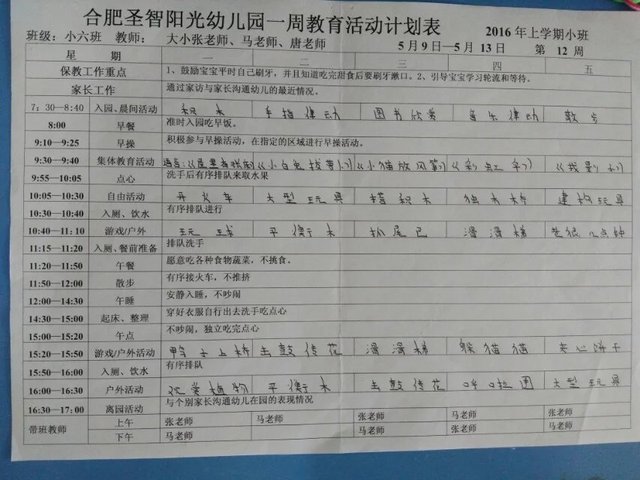 合肥圣智阳光幼儿园一周教育活动计划表
班级：小六班 教师： 大小张老师、马老师、唐老师 2016年上学期小班
5月9日—5月13日 第 12 周
星 期 一 二 三 四 五
保教工作重点 1、鼓励宝宝平时自己刷牙，并且知道吃完甜食后要刷牙漱口。2、引导宝宝学习轮流和等待。
家长工作 通过家访与家长沟通幼儿的最近情况。
7：30—8:40 入园、晨间活动 积木 手指律动 图书欣赏 音乐律动 散步
8:00 早餐 准时入园吃早饭。
9:10—9:25 早操 积极参与早操活动，在指定的区域进行早操活动。
9:30—9:40 集体教育活动 《小白兔拔萝卜》 《小猫放风筝》 《彩虹伞》
9:55—10:05 点心 洗手后有序排队来取水果
10:05—10:30 自由活动 开火车 大型玩具 搭积木 独木桥 建构玩具
10:30—10:40 入厕、饮水 有序排队进行
10:40—11:10 游戏/户外 玩球 平衡木 抓尾巴 滑滑梯 老狼几点钟
11:15—11:20 入厕、餐前准备 排队洗手
11:20—11:50 午餐 愿意吃各种食物蔬菜，不挑食。
11:50—12:00 散步 有序接火车，不推挤
12:00—14:30 午睡 安静入睡，不吵闹
14:30—15:00 起床、整理 穿好衣服自行出去洗手吃点心
15:00—15:20 午点 不吵闹，独立吃完点心
15:20—15:50 游戏/户外活动 鸭子上桥 击鼓传花 滑滑梯 躲猫猫 夹心饼干
15:50—16:00 入厕、饮水 有序排队
16:00—16:30 户外活动 观赏植物 平衡木 击鼓传花 大型玩具
16:30—17:00 离园活动 与个别家长沟通幼儿在园的表现情况
带班教师 上午 张老师 马老师 张老师 马老师 张老师
下午 马老师 马老师 张老师 马老师